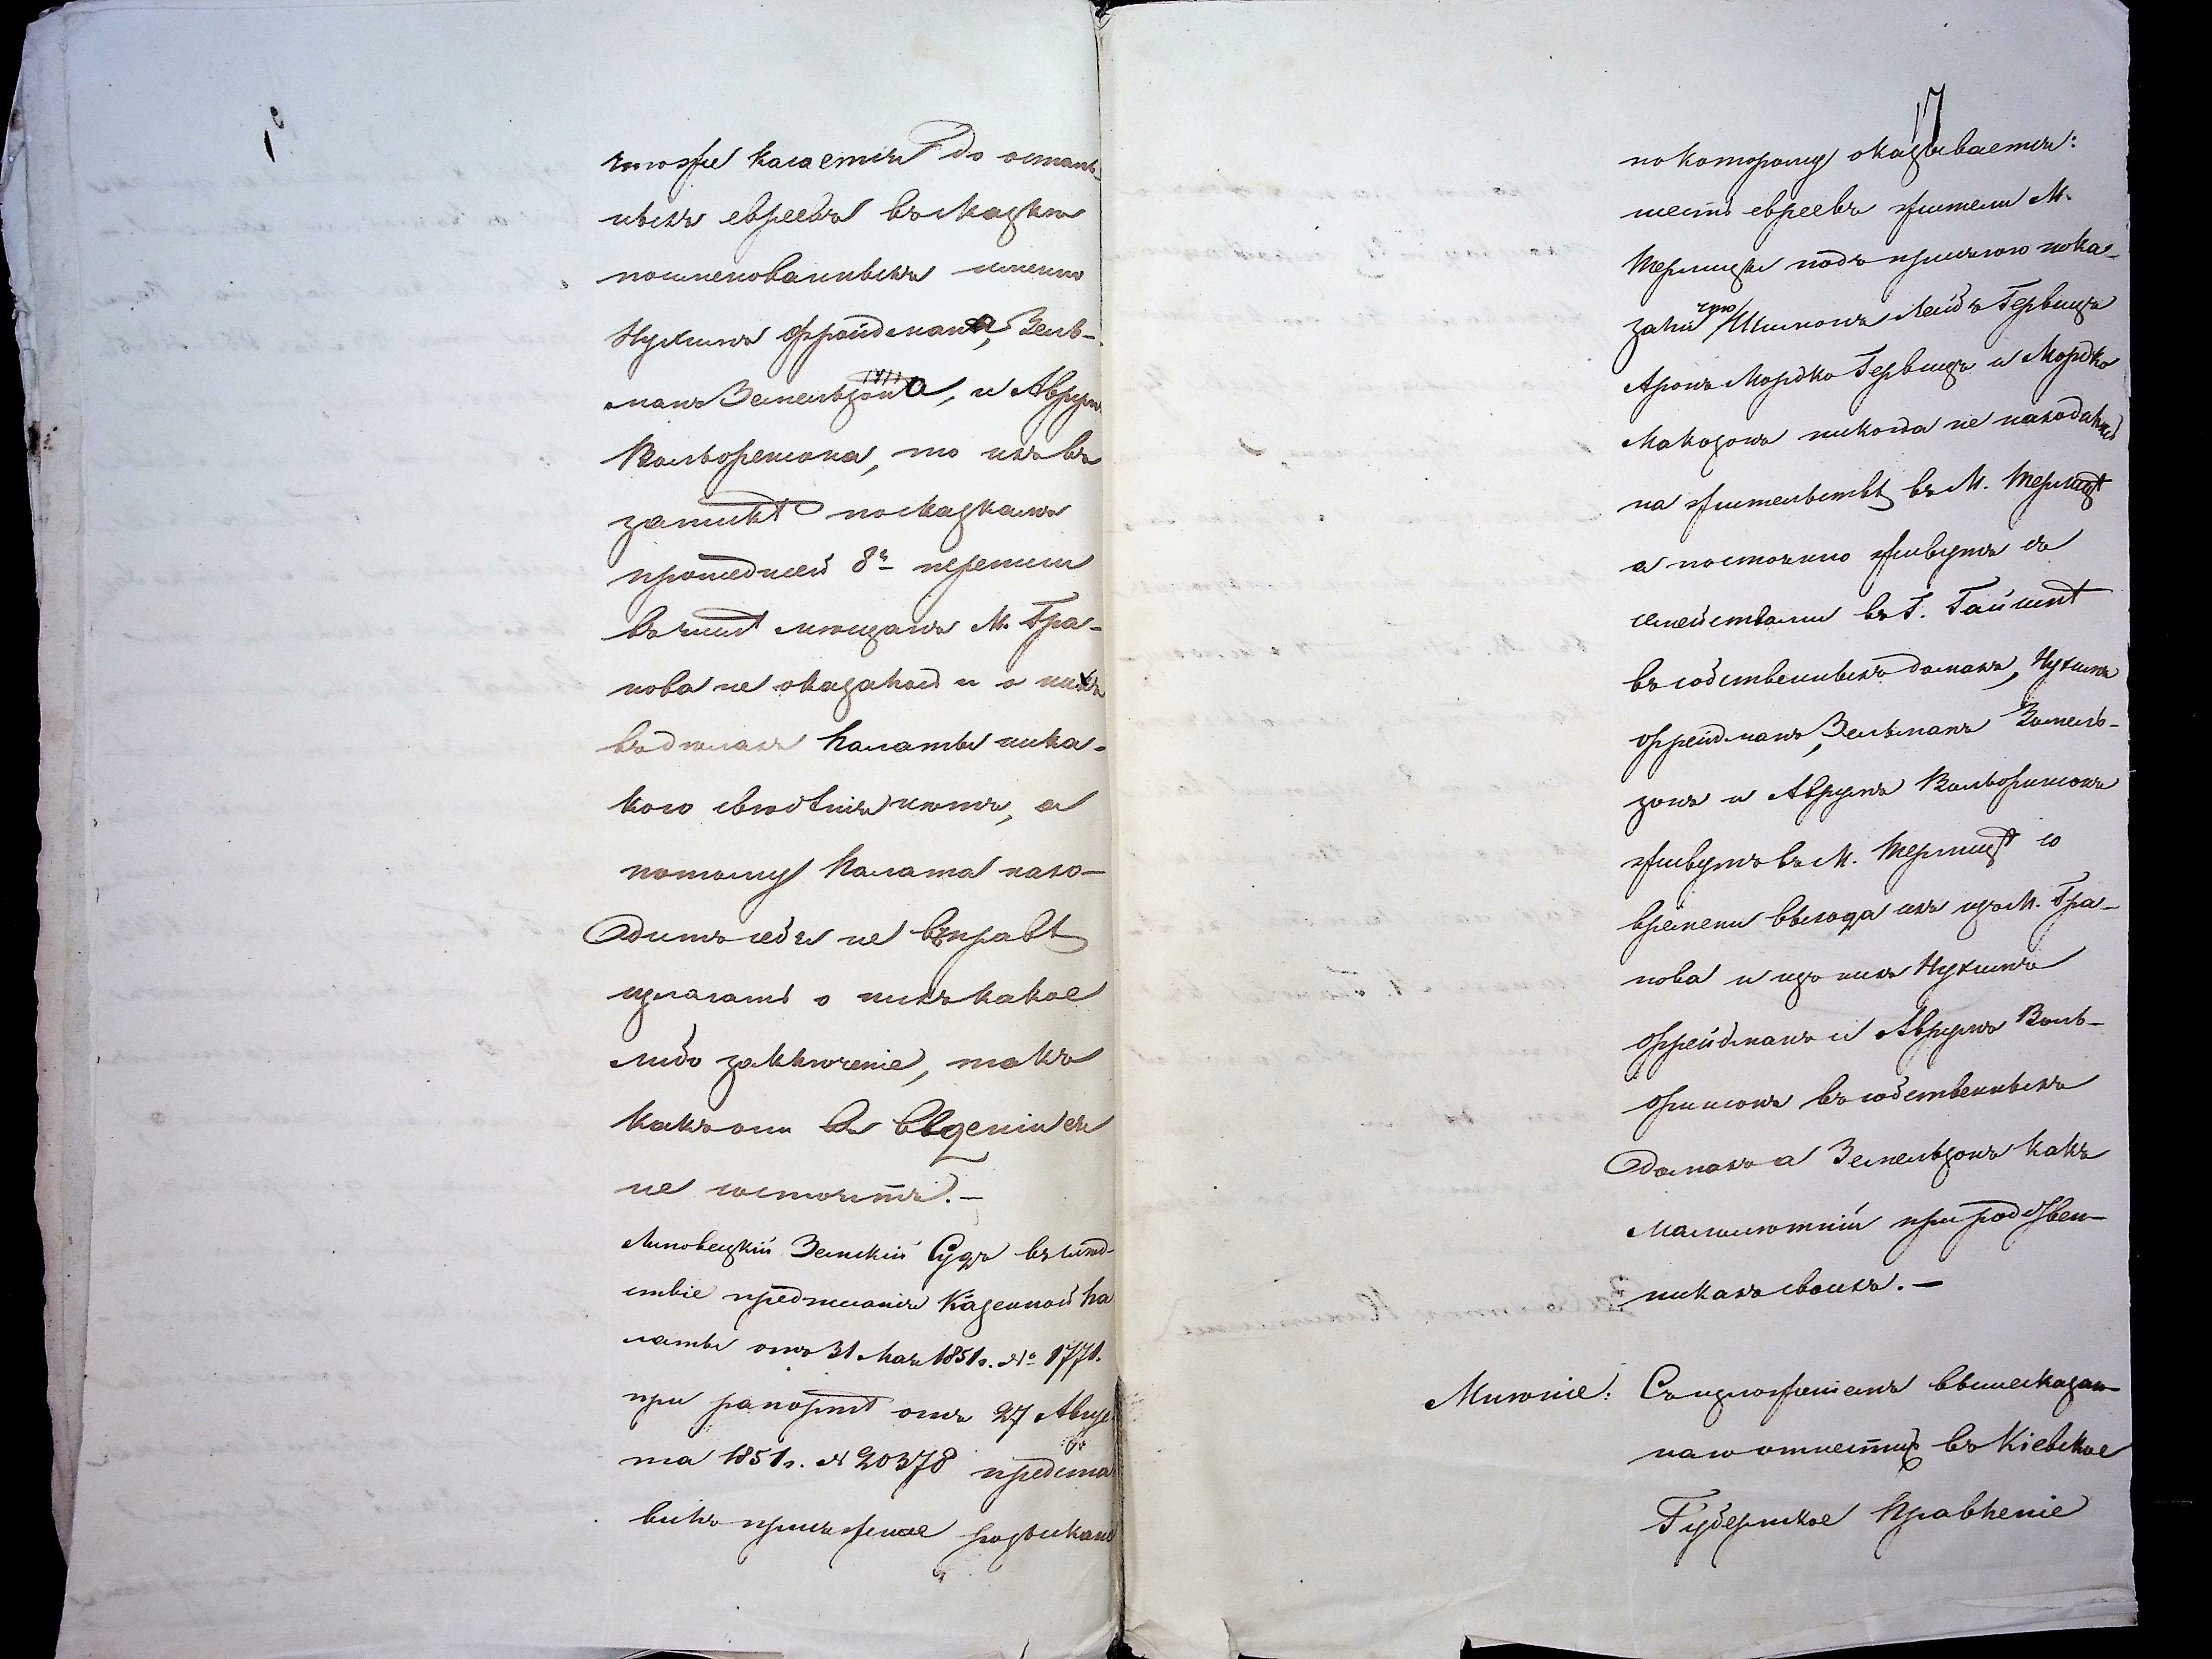 чтоже касается до осталь-
ныхъ евреевъ въ сказкѣ
поименованныхъ именно
Нухима Фройдмана, Зель-
мана Земельзона, и Аврума
Вольфензона, то ихъ въ
запискѣ по сказкамъ
прошедшей 8й переписи
въ числѣ мѣщанъ М. Гра-
нова не оказалось и о нихъ
въ дѣлахъ Палаты ника-
кого свѣдѣнія нѣтъ, а
потому Палата нахо-
дитъ себя не вправѣ
излагать о нихъ какое
либо заключеніе, такъ
какъ они въ вѣденіи ея
не состоятъ.—
Липовецкій Земскій Судъ въ слѣд-
ствіе предписанія Казенной Па
латы отъ 31 Мая 1851г. № 1771.
при рапортѣ отъ 27 Авгус
та 1851г. № 20378 предста
вилъ присяжное розысканіе
17
по которому оказывается:
шесть евреевъ жители М.
Терлицы подъ присягою пока-
зали что Шимонъ Лейдъ Гервицъ
Аронъ Мордко Гервицъ и Мордко
Макозонъ никогда не находились
на жительствѣ въ М. Терлицѣ
а постоянно живутъ съ
семействами въ Г. Гайсинѣ
въ собственныхъ домахъ, Нухимъ
Фрейдманъ, Зельманъ Земель-
зонъ и Аврумъ Вольфинзонъ
живутъ въ М. Терлицѣ со
времени выхода ихъ изъ М. Гра-
нова и изъ нихъ Нухимъ
Фрейдманъ и Аврумъ Воль-
финзонъ въ собственныхъ
домахъ а Земельзонъ какъ
малолѣтній при родствен-
никахъ своихъ.—
Мнѣніе: Съ изложеніемъ вышесказан-
наго отнестись въ Кіевское
Губернское Правленіе